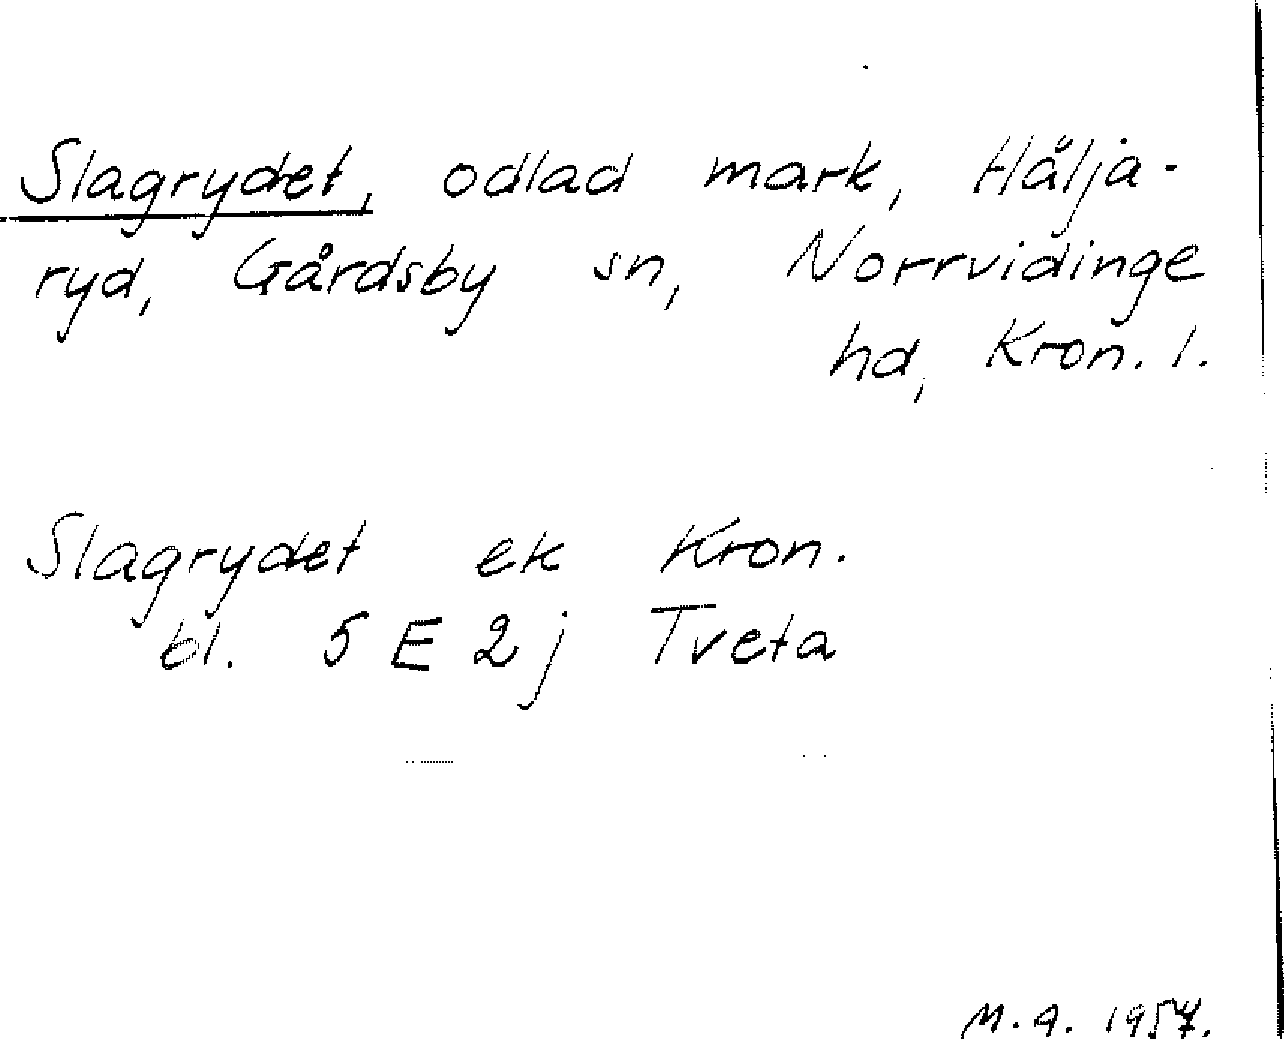 Slagrydet, odlad mark, Hålja-
ryd, Gårdsby sn, Norrvidinge
hd, Kron. l.
Slagrydet ek Kron.
bl. 5 E 2j Tveta
M.A. 1957.